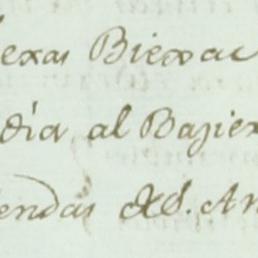 exas Biexac
dia al Bajiex
endas &d. An